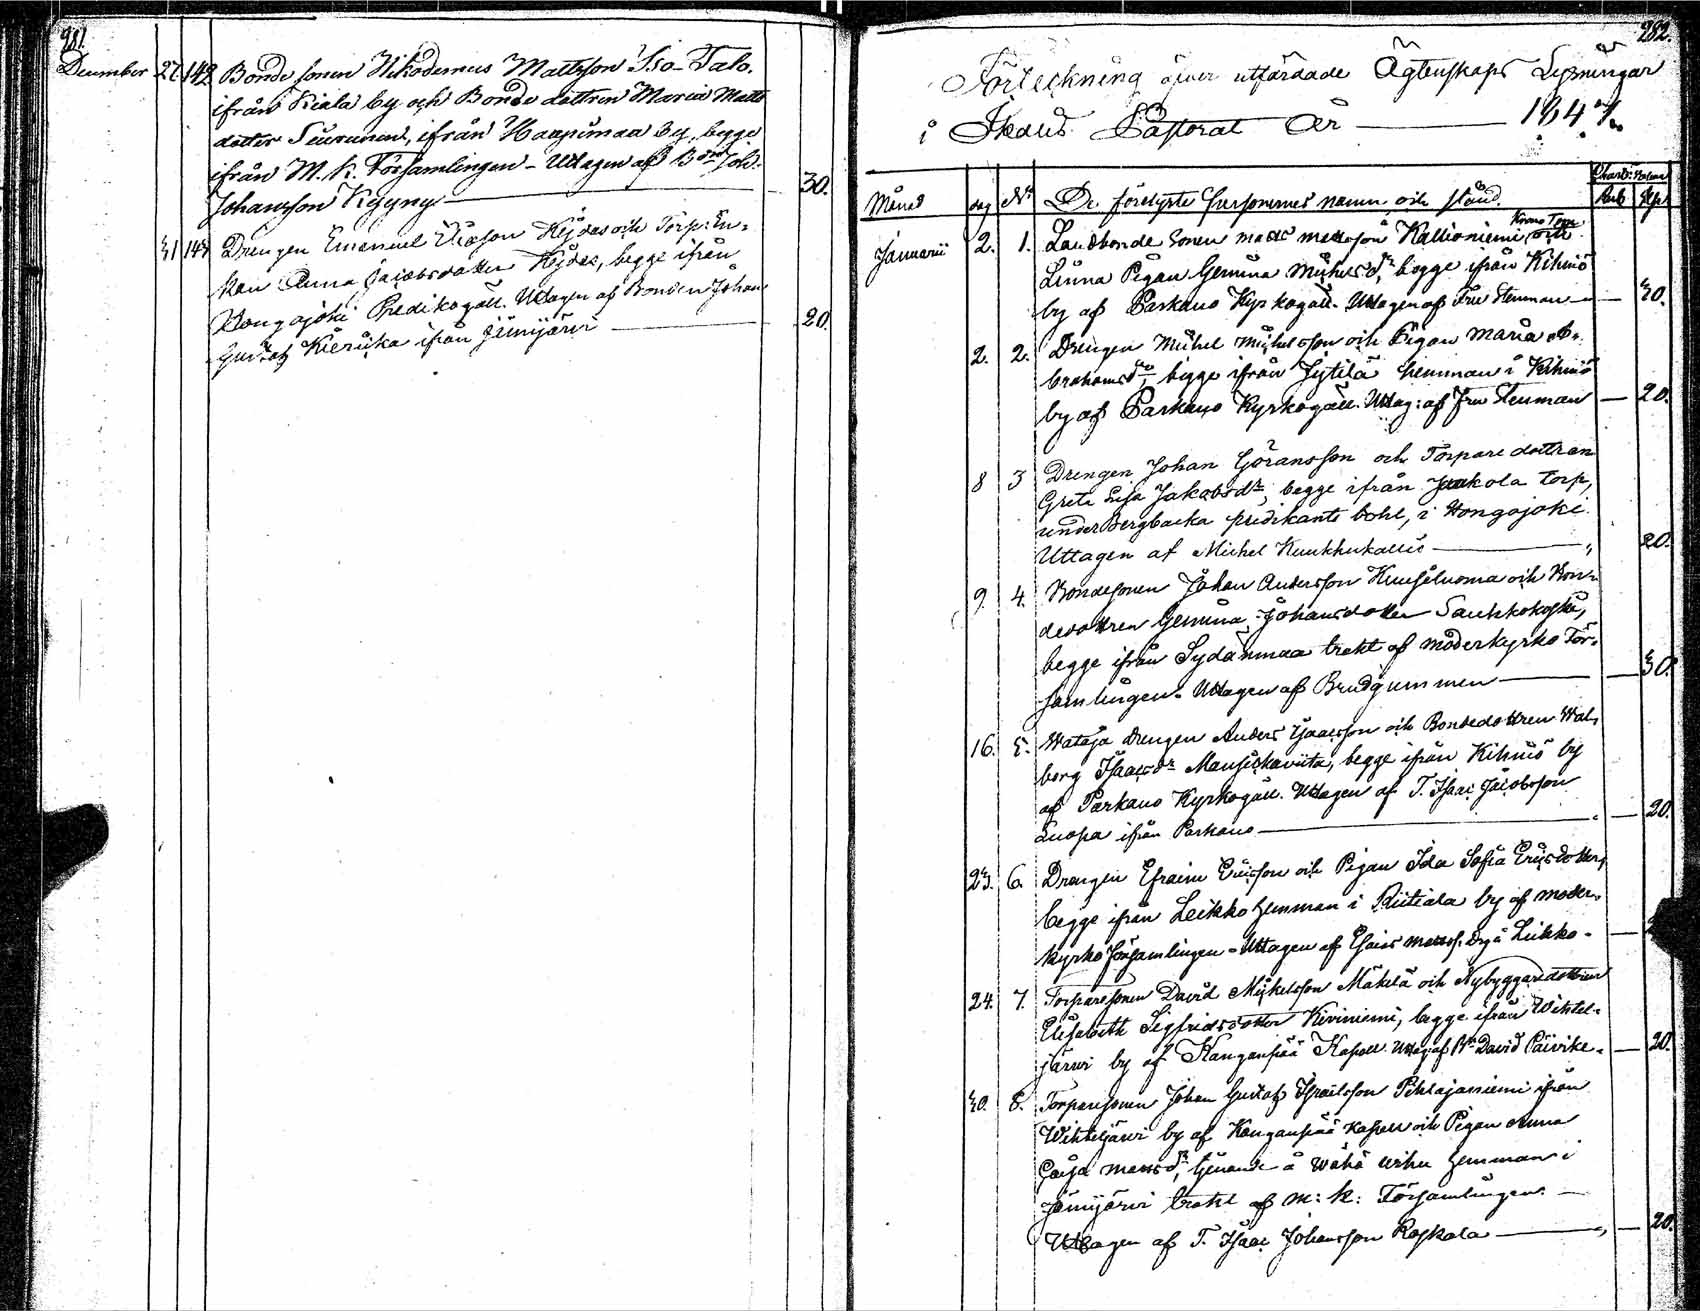 281.
December 27. 142 Bonde sonen Nikodemus Mattsson Iso-Talo,
ifrån Kiala by och Bonde dottren Maria Matts
dotter Seurunen, ifrån Haapimaa by, begge
ifrån M. k. Församlingen - Uttagen af Bdn Joh:
Johansson Kyyny 30.
31 143 Drengen Emanuel Ericsson Heydas och Torp: En-
kan Anna Jacobsdotter Heydas, begge ifrån
Hongojoki Predikogäll. Uttagen af Bonden Johan
Gustaf ifrån Jämijärvi 20.
282.
Förteckning öfver utfärdade Ägtenskaps Lysningar
i Ikalis Pastorat År 1847.
Månad dag No De förelyste Personernes namn och stånd. Rub Kop
Januarii 2. 1. Landbonde Sonen Matts Mattsson Kallioniemi och
Linna Pigan Gemina Michelsdr, begge ifrån Kihniö
by af Parkano Kyrkogäll. Uttagen af Fru Stenman 30.
2. 2. Drengen Michel Michelsson och Pigan Maria A-
brahamsdr, begge ifrån Jytilä hemman i Kihniö
by af Parkano Kyrkogäll. Uttag: af Fru Stenman 20.
8 3 Drengen Johan Göransson och Torpare dottren
Greta Lisa Jakobsdr, begge ifrån Jaakola torp,
under Bergbacka predikants bohl, i Hongojoki.
Uttagen af Michel Kuukkukallio 20.
9. 4. Bondesonen Johan Andersson Kuusiluoma och Bon-
dedottren Gemina Johansdotter Saukkokoski,
begge ifrån Sydänmaa trakt af moderkyrko För-
samlingen. Uttagen af Brudgummen 30.
16. 5. Wataja drengen Anders Isaacsson och Bondedottren Wal-
borg Isaacsdr Mansickaviita, begge ifrån Kihniö by
af Parkano Kyrkogäll. Uttagen af T. Isaac Jacobsson
Luopa ifrån Parkano 20.
23. 6. Drengen Efraim Ericsson och Pigan Ida Sofia Ericsdotter,
begge ifrån Leikko hemman i Riitiala by af moder-
kyrko församlingen - Uttagen af Esaias Leikko -
24. 7. Torparesonen David Mickelsson Mäkelä och Nybyggaredottren
Elisabeth Sigfridsdotter Kiviniemi, begge ifrån Wihtel-
järvi by af Kanganpää Kapell. Uttag: af Bn David Päivike 20.
30. 8. Torparesonen Johan Gustaf Israelsson Pihlajaniemi ifrån
Wihteljärvi by af Kanganpää Kapell och Pigan Anna
Caisa Mattsdr, tjenande å Wähä hemman i
Jämijärvi trakt af m: k: Församlingen.
Uttagen af T. Isaac Johansson Koskela 20.